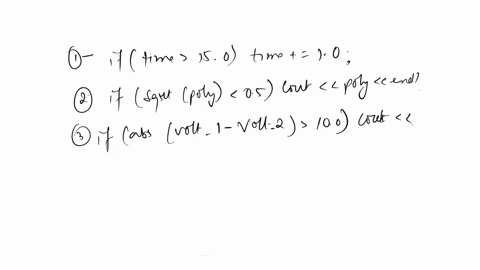 ① - if (time > 15.0) time += 1.0;
② if (sqrt (poly) < 0.5) cout << poly << endl
③ if (abs (volt_1 - Volt_2) > 10.0) cout <<